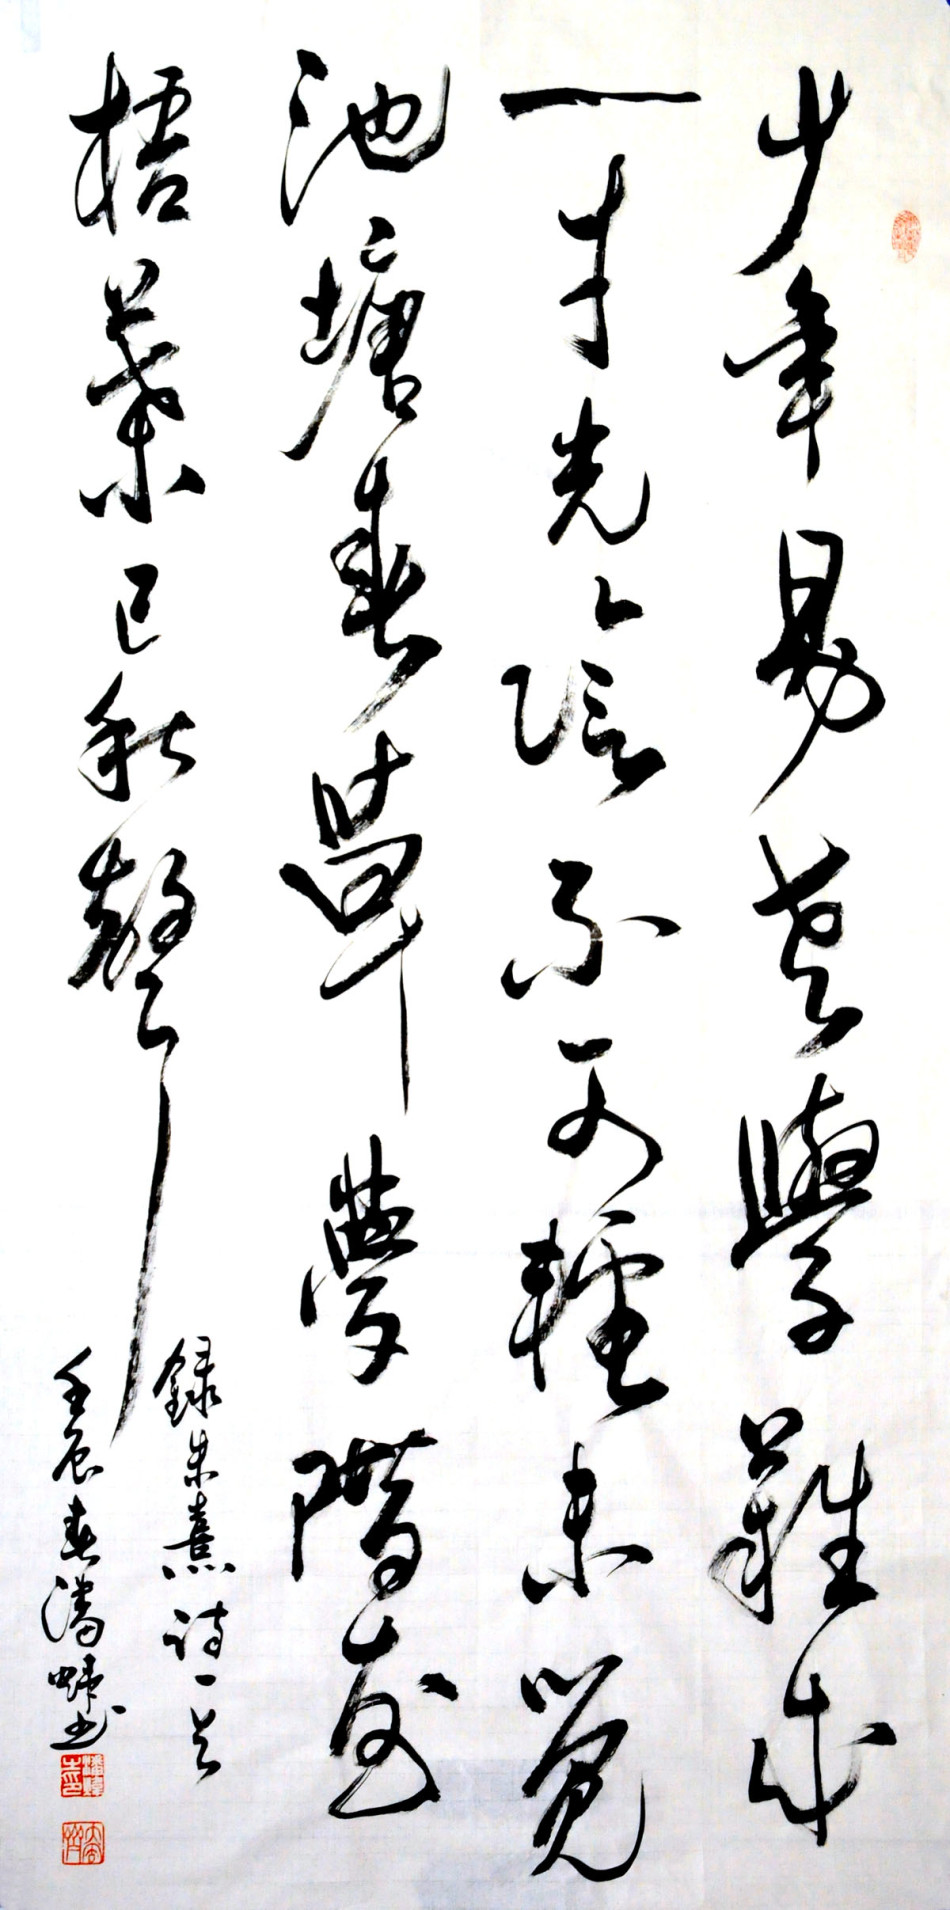 少年易老學難成
一寸光陰不可輕未覺
池塘春草夢階前
梧葉已秋聲
錄朱熹詩一首
壬辰春潘書